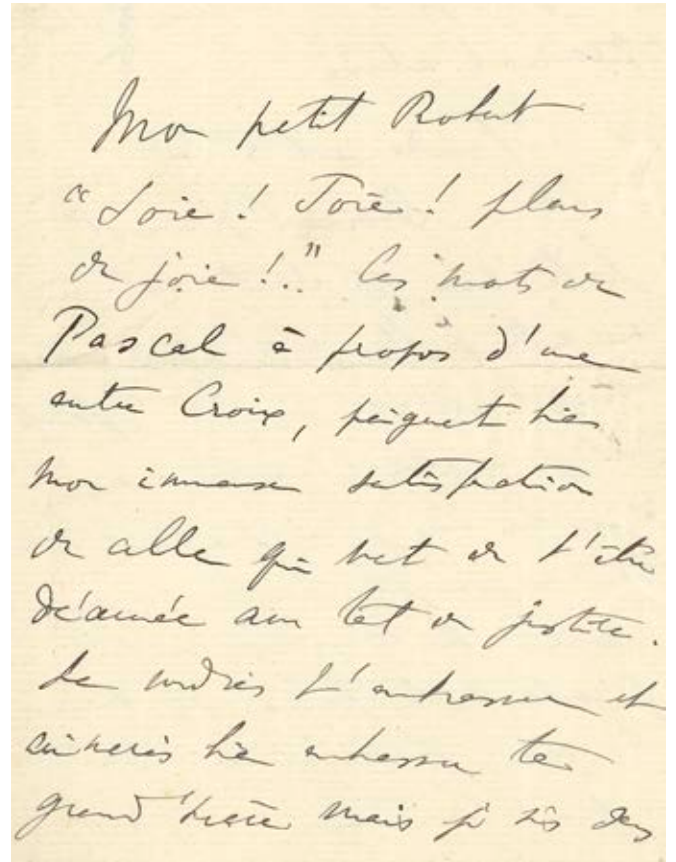 Mon petit Robert
"Joie ! Joie ! pleurs
de joie !.." Ces mots de
Pascal à propos d'une
autre Croix, peignent bien
mon immense satisfaction
de celle qui vient de t'être
décernée avec tant de justice.
Je voudrais t'embrasser et
aimerais bien embrasser ton
grand'père mais je suis dans